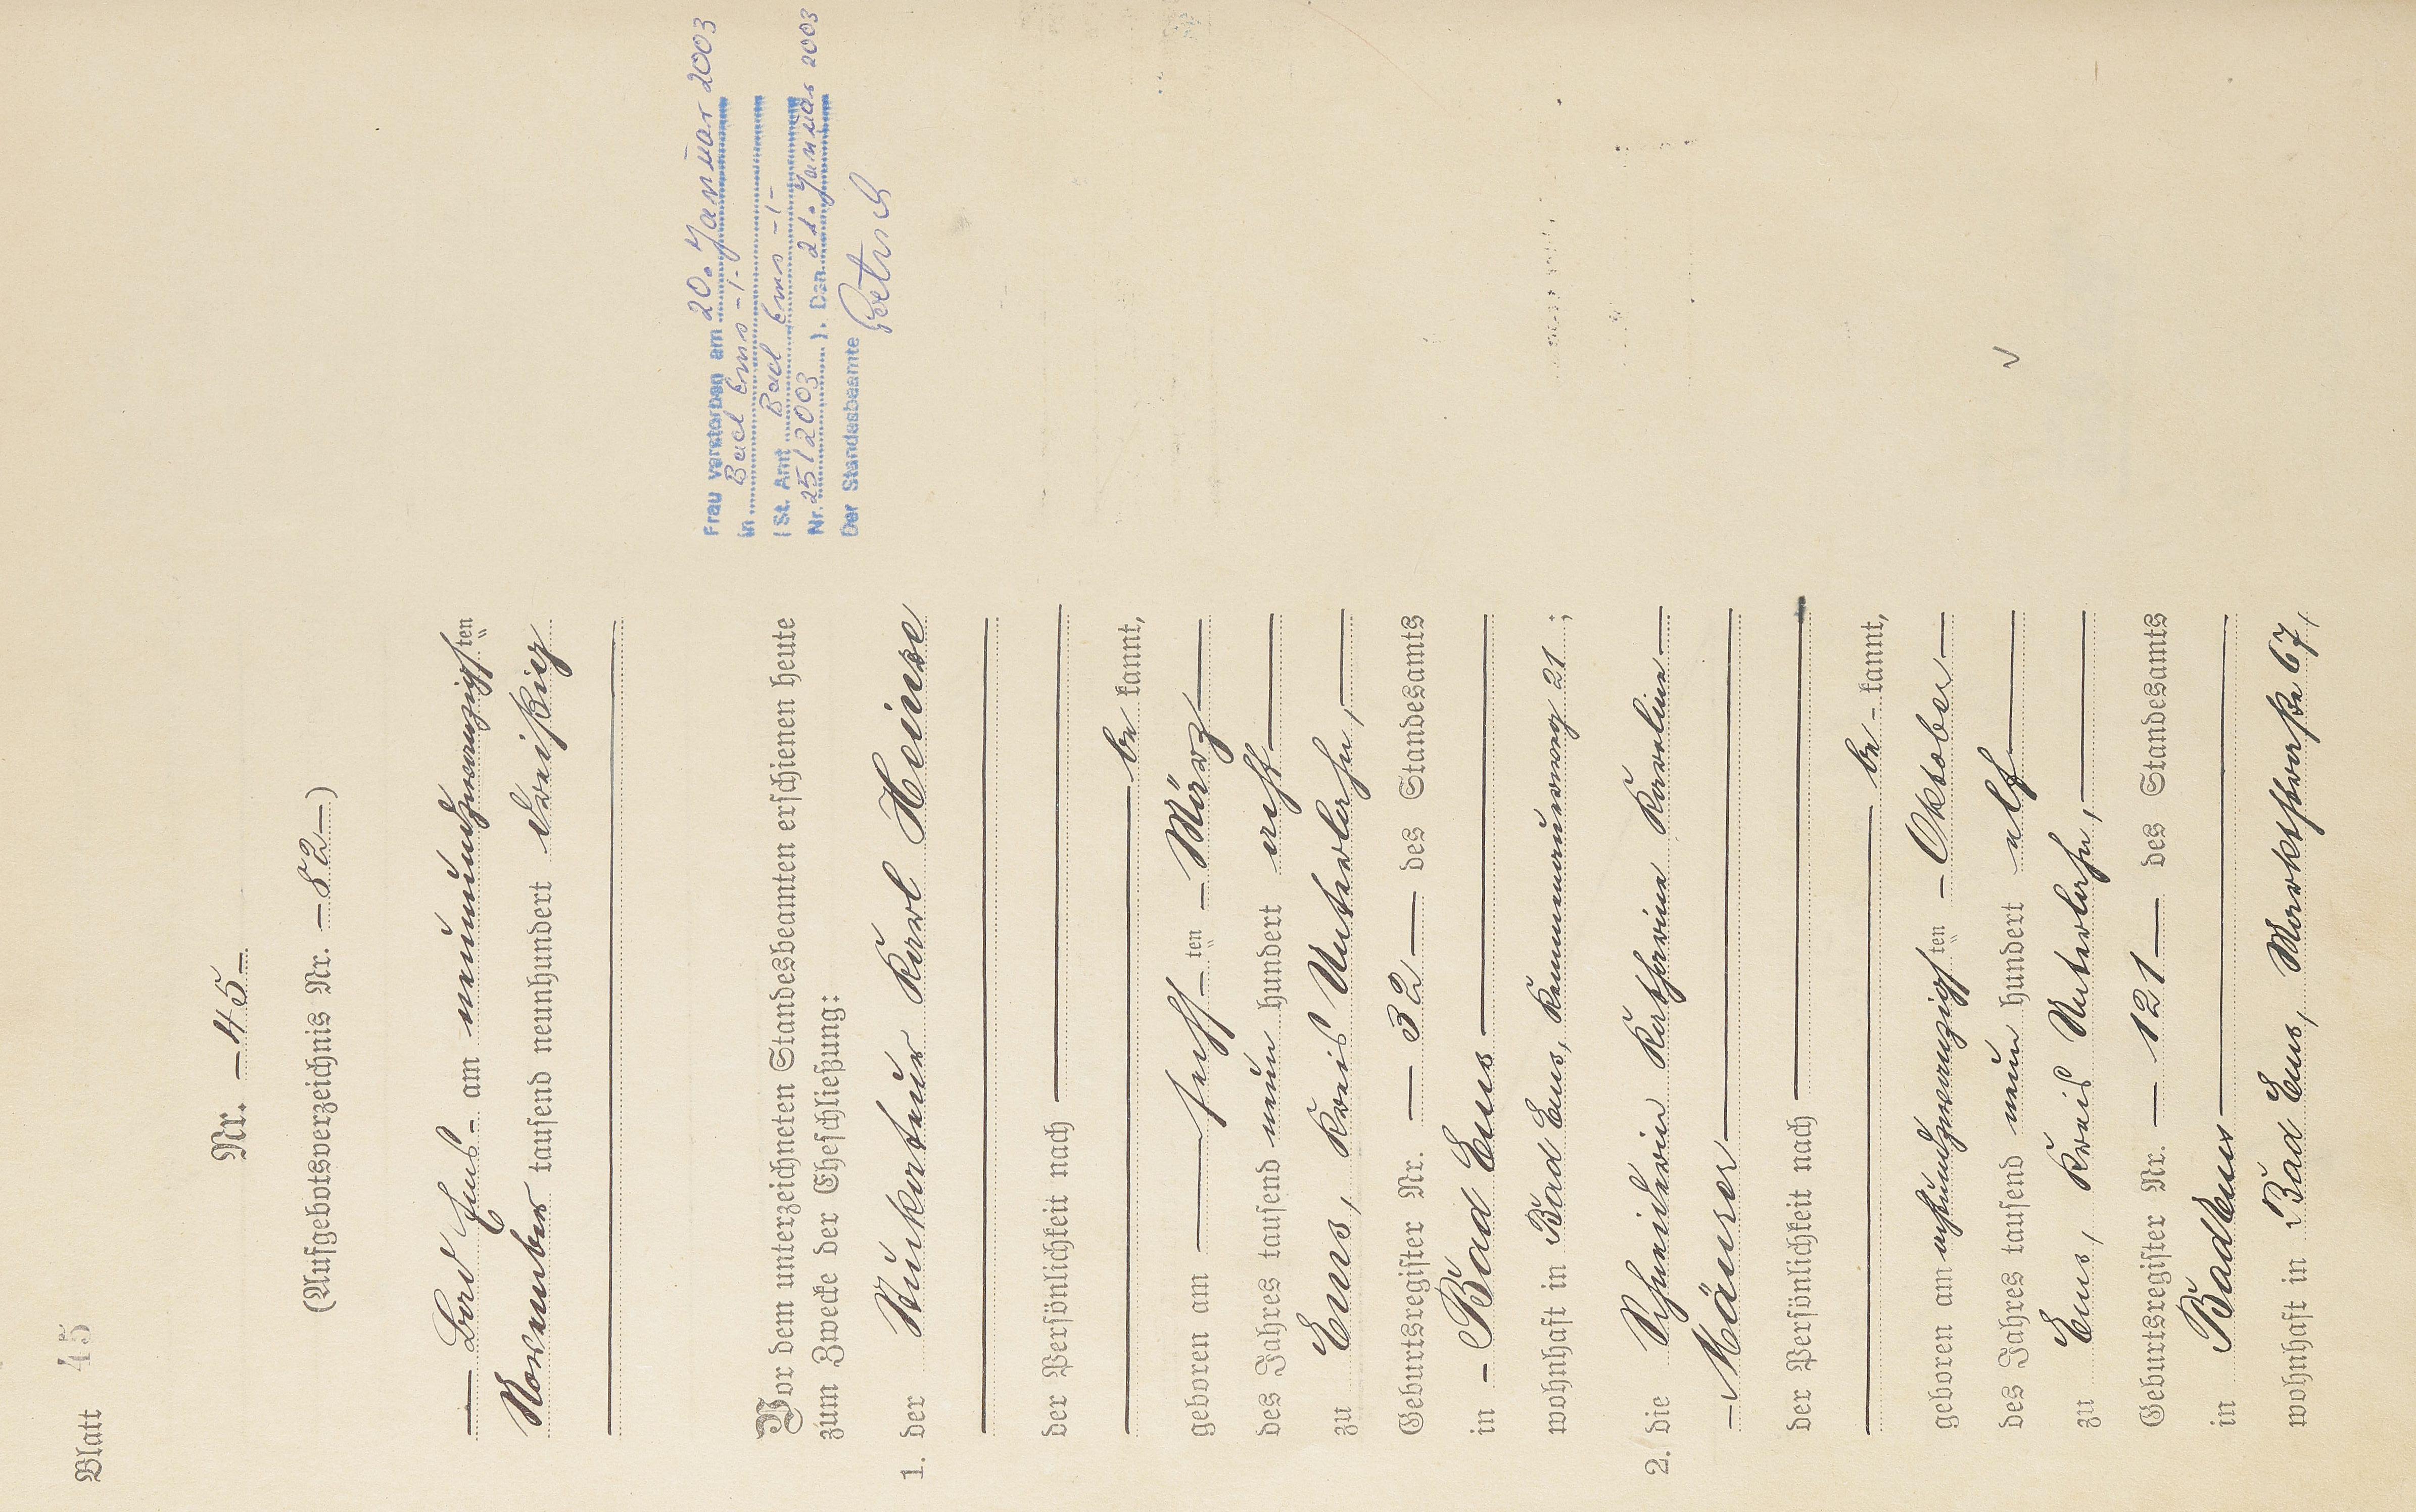 Blatt 45
Nr. — 45 —
(Aufgebotsverzeichnis Nr. — 82 —)
— Bad Ems — am neunundzwanzigsten
November tausend neunhundert dreißig
Vor dem unterzeichneten Standesbeamten erschienen heute
zum Zwecke der Eheschließung:
1. der Dekorateur Karl Heinse
der Persönlichkeit nach
— be kannt,
geboren am — sechs — ten — März —
des Jahres tausend neun hundert acht —
zu Ems, Kreis Unterlahn, —
Geburtsregister Nr. — 32 — des Standesamts
in — Bad Ems —
wohnhaft in Bad Ems, 21 ;
2. die Schneiderin Katharina Karolina —
— Mäurer —
der Persönlichkeit nach
— be - kannt,
geboren am achtundzwanzigsten — Oktober —
des Jahres tausend neun hundert elf —
zu Ems, Kreis Unterlahn, —
Geburtsregister Nr. — 121 — des Standesamts
in Bad Ems —
wohnhaft in Bad Ems, Marktstraße 67,
Frau verstorben am 20. Januar 2003
in Bad Ems -/-
(St. Amt Bad Ems -/-
Nr. 25/2003 ). Den 21. Januar 2003
Der Standesbeamte